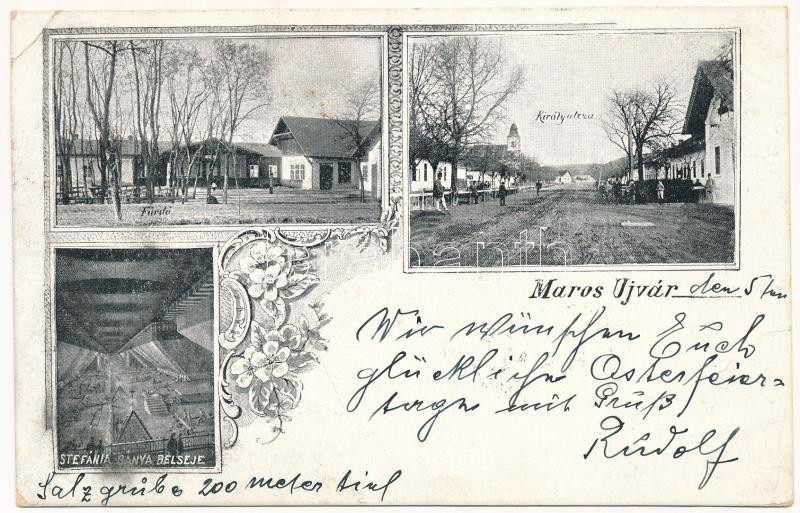 Fürdő
Király utcza
Maros Ujvár den 5ten
Wir wünschen Euch
glückliche Osterfeier=
tage mit Gruß
Rudolf
STEFÁNIA BÁNYA BELSEJE
Salzgrube 200 meter tief